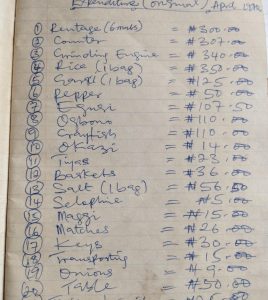 Expenditure (original) April 17th
① Rentage (6mths) = ₦300.00
② Counter = ₦307.00
③ Grinding Engine = ₦340.00
④ Rice (1bag) = ₦350.00
⑤ Garri (1bag) = ₦125.00
⑥ Pepper = ₦50.00
⑦ Egusi = ₦107.50
⑧ Ogbono = ₦110.00
⑨ Crayfish = ₦110.00
⑩ Okazi = ₦14.00
⑪ Tiyas = ₦23.00
⑫ Baskets = ₦36.00
⑬ Salt (1bag) = ₦56.50
⑭ Selophine = ₦5.00
⑮ Maggi = ₦15.00
⑯ Matches = ₦26.00
⑰ Keys = ₦30.00
⑱ Transporting = ₦15.00
⑲ Onions = ₦9.00
⑳ Table = ₦50.00